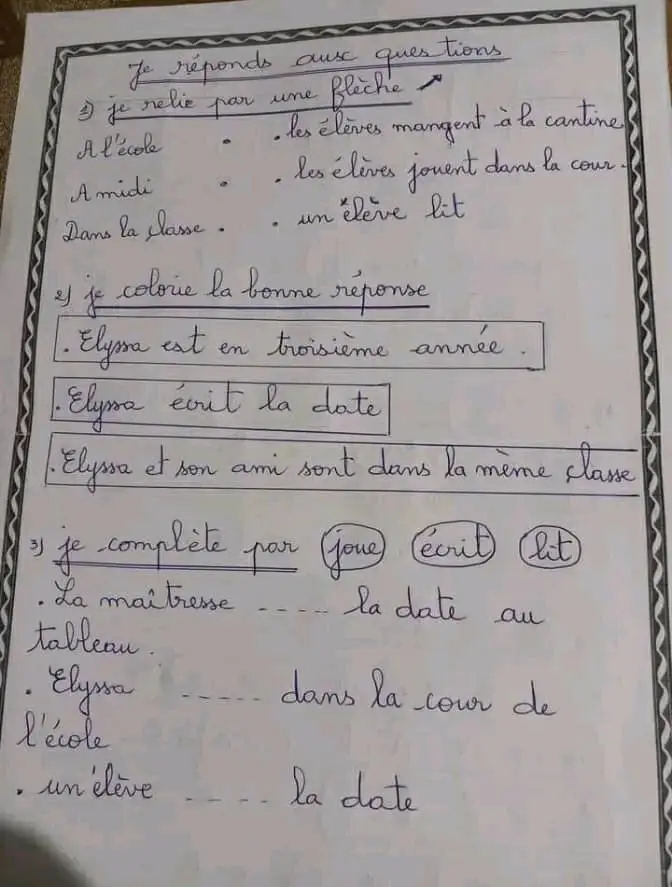 Je réponds aux questions
1) je relie par une flèche
A l'école . . les élèves mangent à la cantine
A midi . . les élèves jouent dans la cour.
Dans la classe . . un élève lit
2) je colorie la bonne réponse
. Elyssa est en troisième année.
. Elyssa écrit la date
. Elyssa et son ami sont dans la même classe
3) je complète par joue écrit lit
. La maîtresse ---- la date au
tableau.
. Elyssa ----- dans la cour de
l'école
. un élève ---- la date